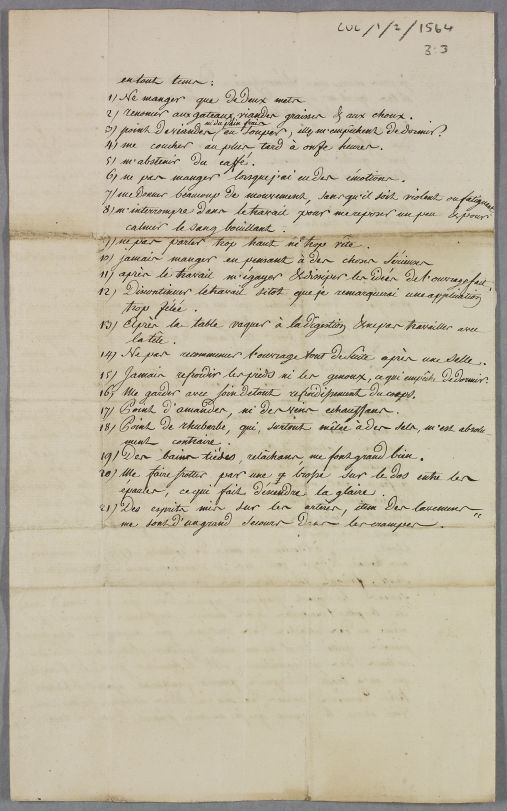 CUL/1/2/1564
3.3
en tout tems:
1) Ne manger que de deux mets
2) renoncer aux gateaux, viandes grasses & aux choux.
ni du pain frais
3) point de viandes au souper, elles m'empêchent de dormir.
4) me coucher au plus tard à onse heures.
5) m'abstenir du caffé.
6) ne pas manger lorsque j'ai eu des émotions.
7) me donner beaucoup de mouvement, sans qu'il soit violent ou fatiguant
8) m'interrompre dans le travail pour me reposer un peu & pour
calmer le sang bouillant.
9) ne pas parler trop haut ni trop vite.
10) jamais manger en pensant à des choses sérieuses
11) après le travail m'égayer & dissiper les idées de l'ouvrage fait,
12) Discontinuer le travail sitot que je remarquerai une application
trop fixée.
13) Après la table vaquer à la digestion, & ne pas travailler avec
la tête.
14) Ne pas recommencer l'ouvrage tout de suite après une selle.
15) Jamais refroidir les pieds ni les genoux, ce qui empêche de dormir.
16) Me garder avec soin de tout refroidissement du corps.
17) Point d'amandes, ni des vins echauffans.
18) Point de rhubarbe, qui, surtout mêlée à des sels, m'est absolu-
ment contraire.
19) Des bains tiédes, relâchans me font grand bien.
20) Me faire frotter par une brosse sur le dos entre les
épaules, ce qui fait détendre la glaire.
21) Des esprits mis sur les artères, item des lavemens
me sont d'un grand secours dans les crampes.